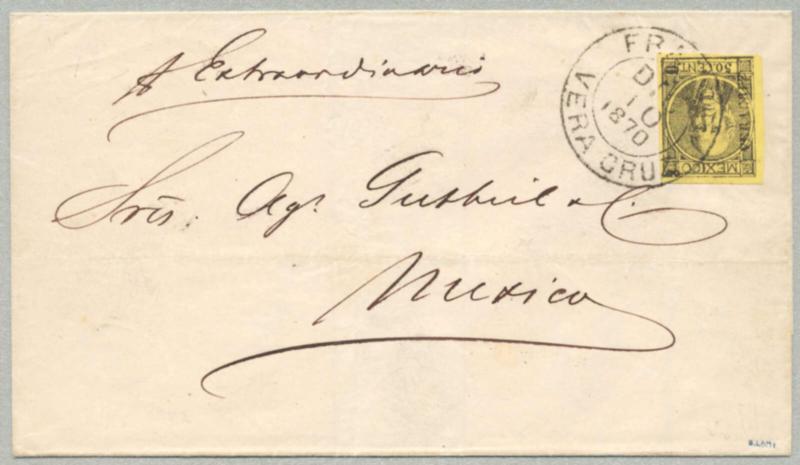 A Extraordinario
Sres. Agn. Gutheil & C.
Mexico
FRA
DI
10
1870
VERA CRUZ
50 CENT
MEXICO